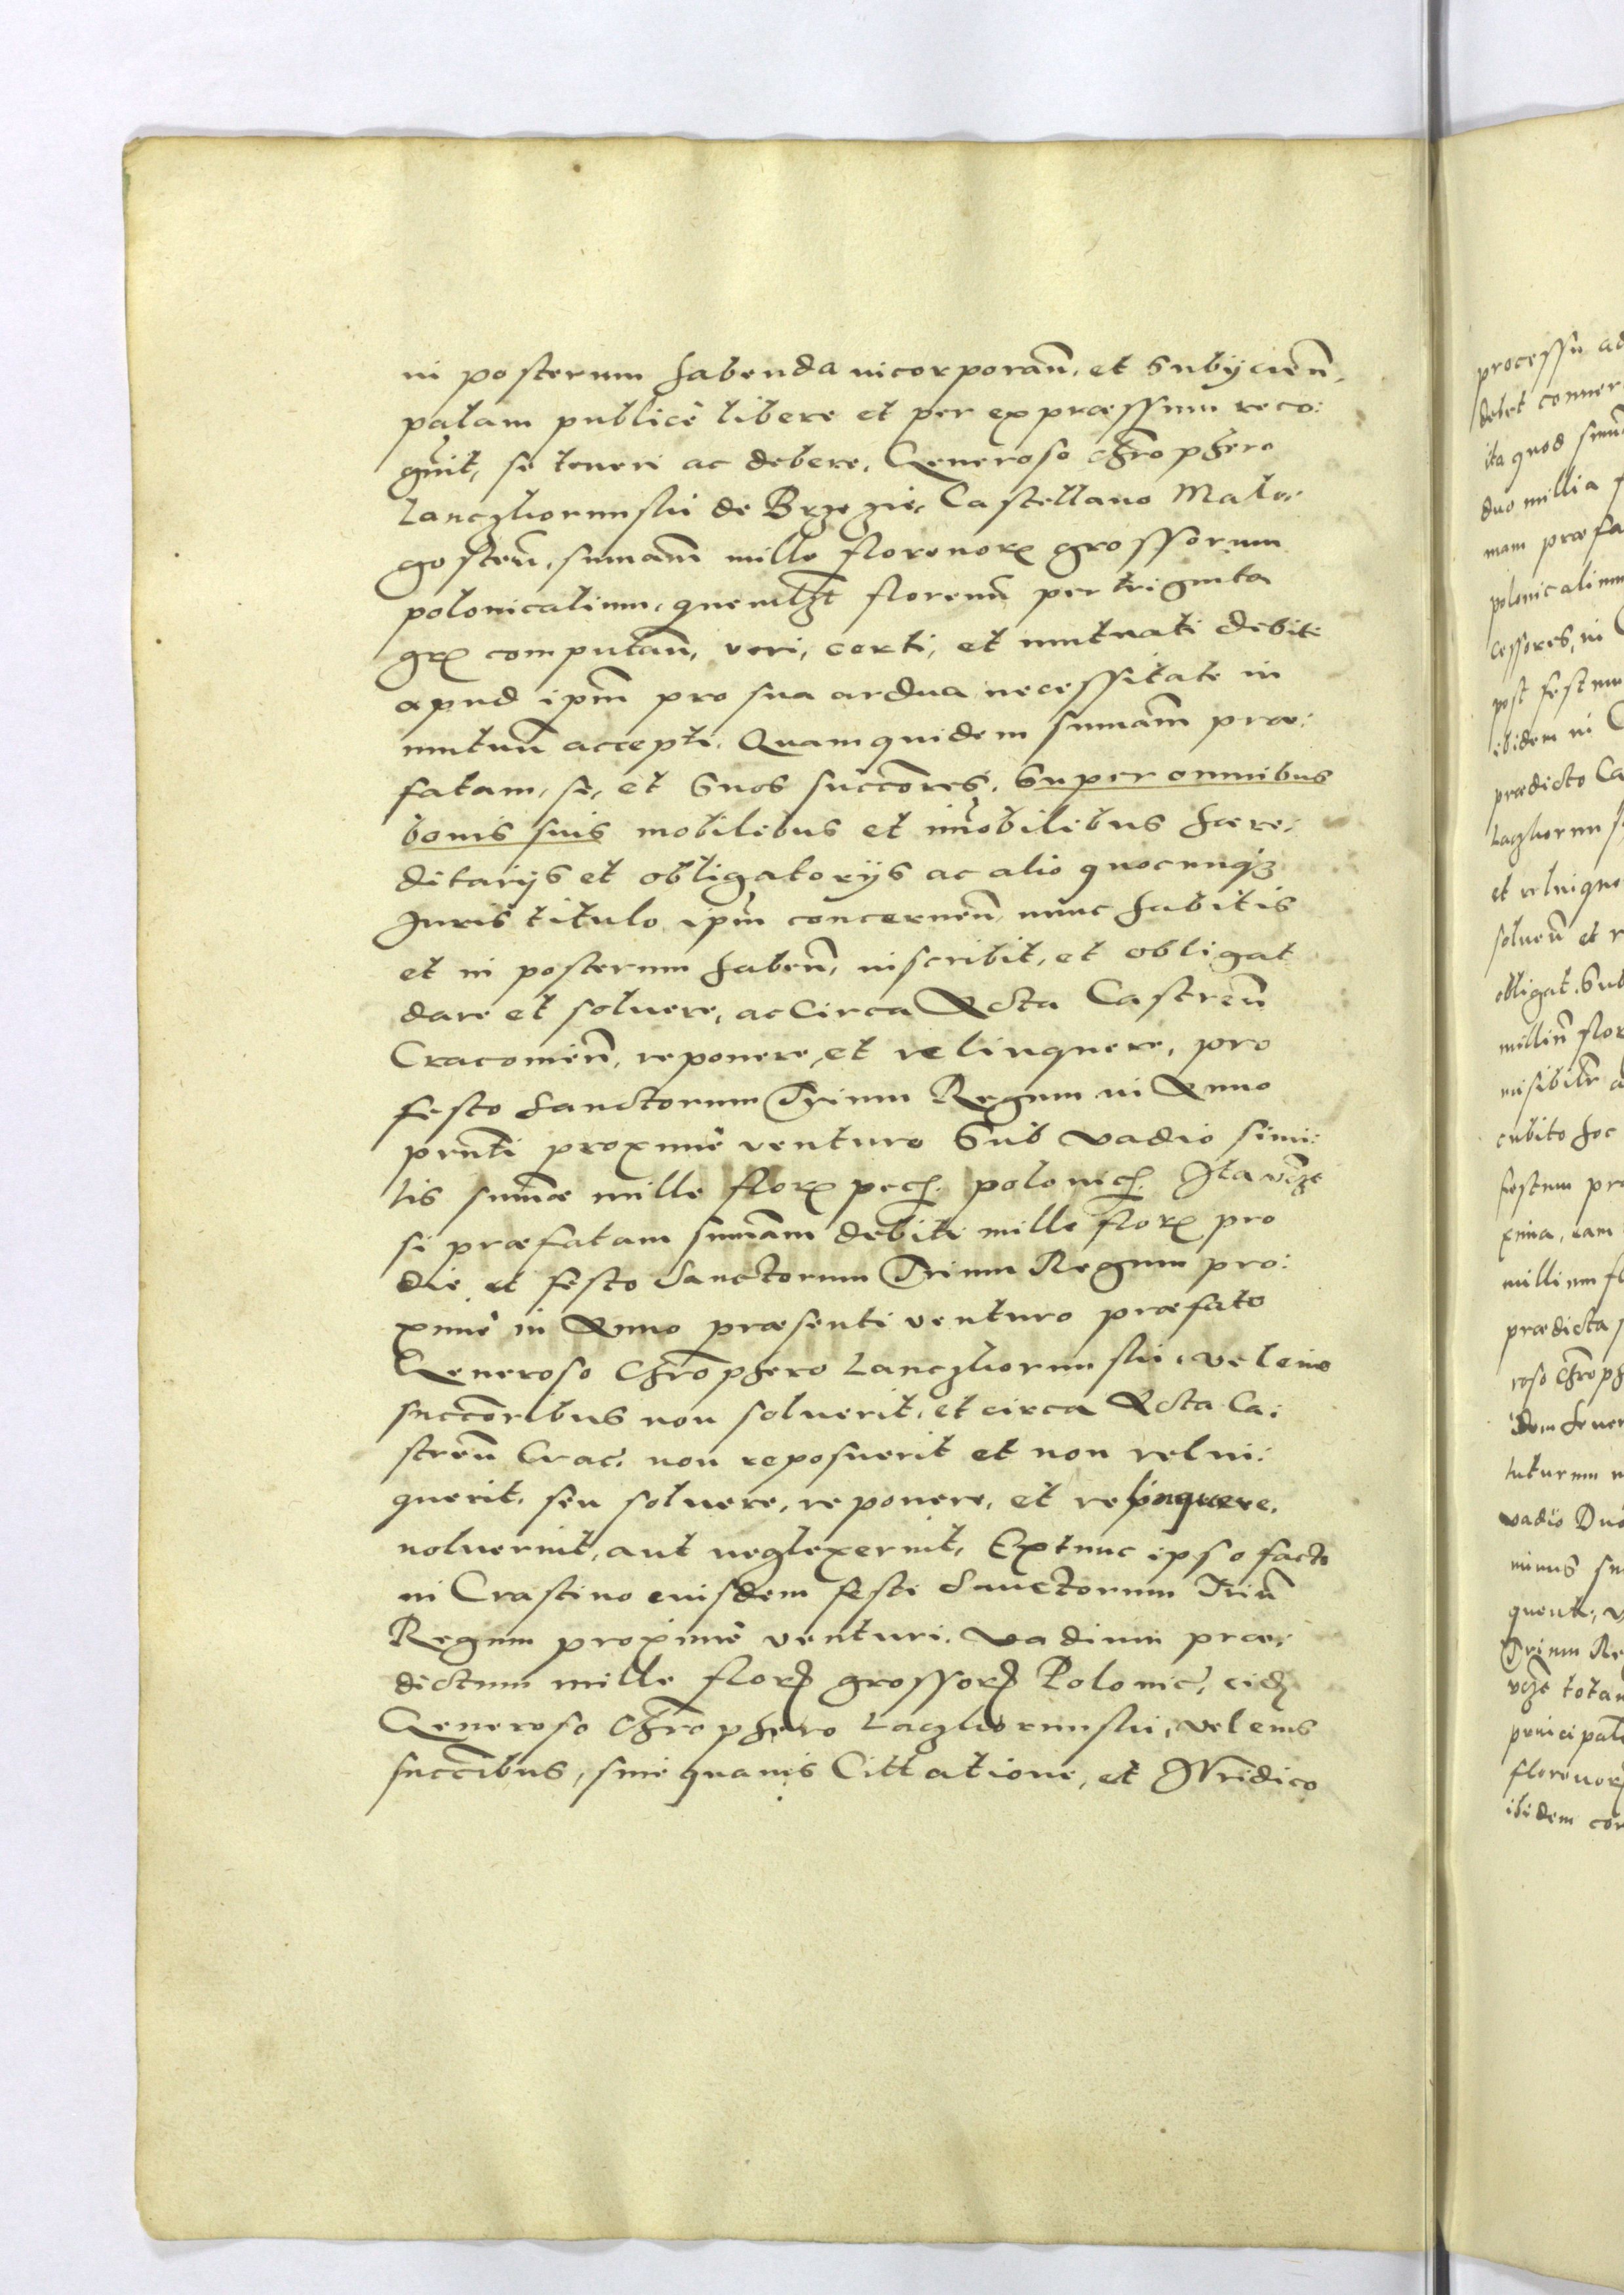 in posterum habenda incorporañ, et Subijcieñ,
palam publicè libere et per expraessum reco:
gñit, se teneri ac debere, Generoso Chrõphero
Lanczkorunskii de Brzezie, Castellano Malo:
gosteñ, sum̃am mille florenorx grossorum
polonicalium, quemlꝫt florenũ per triginta
grx computañ, veri, certi, et mutuati debiti
apud ipm̃ pro sua ardua necessitate in
mutuũ accepti, Quamquidem sum̃am prae:
fatam, se, et Suos succõres, Super omnibus
bonis suis mobilibus et im̃obilibus haere:
ditarijs et obligatorijs ac alio quocunqꝫ
Iuris titulo ipm̃ concerneñ, nunc habitis
et in posterum habeñ, inscribit, et obligat
dare et soluere, ac Circa Acta Castreñ
Cracouieñ, reponere, et relinquere, pro
festo Sanctorum Trium Regum in Anno
prñti proximè venturo Sub vadio simi:
lis sum̃ae mille florx pech. polonich. Ita vꝫ
si praefatam sum̃am debiti mille florx pro
die et festo Sanctorum Trium Regum pro:
ximè in Anno praesenti venturo praefato
Generoso Chrõphero Lanczkorunskii, vel eius
succõribus non soluerit, et circa Acta Ca:
streñ Crac. non reposuerit et non relin:
querit, seu soluere, reponere, et relinquere,
noluerint, aut neglexerint, Extunc ipso facto
in Crastino eiusdem festi Sanctorum Triũ
Regum proximè venturi, vadium prae:
dictum mille florx grossorx Polonic, eidẽ
Generoso Chrõphero Laczkorunskii, vel eius
succõibus, sine quauis Cittatione, et Iuridico
processu ad
debet
ita quod
duo millia
mam praefa
polonicalium
cessores, in
post festum
ibidem in
praedicto Ca
et relinque
solueñ et r
obligat, Sub
milliũ flor
cubito hoc
festum pro
xima, eam
millium fl
praedicta
roso Chrõph
vadio Duo
Trium Re
totam
principal
florenorx
ibidem con